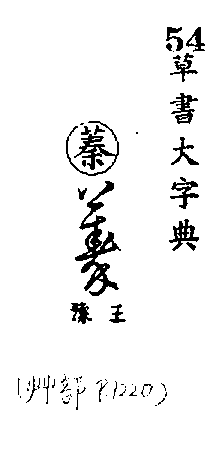 54
草書大字典
蓁
王
(艸部 P.1220)